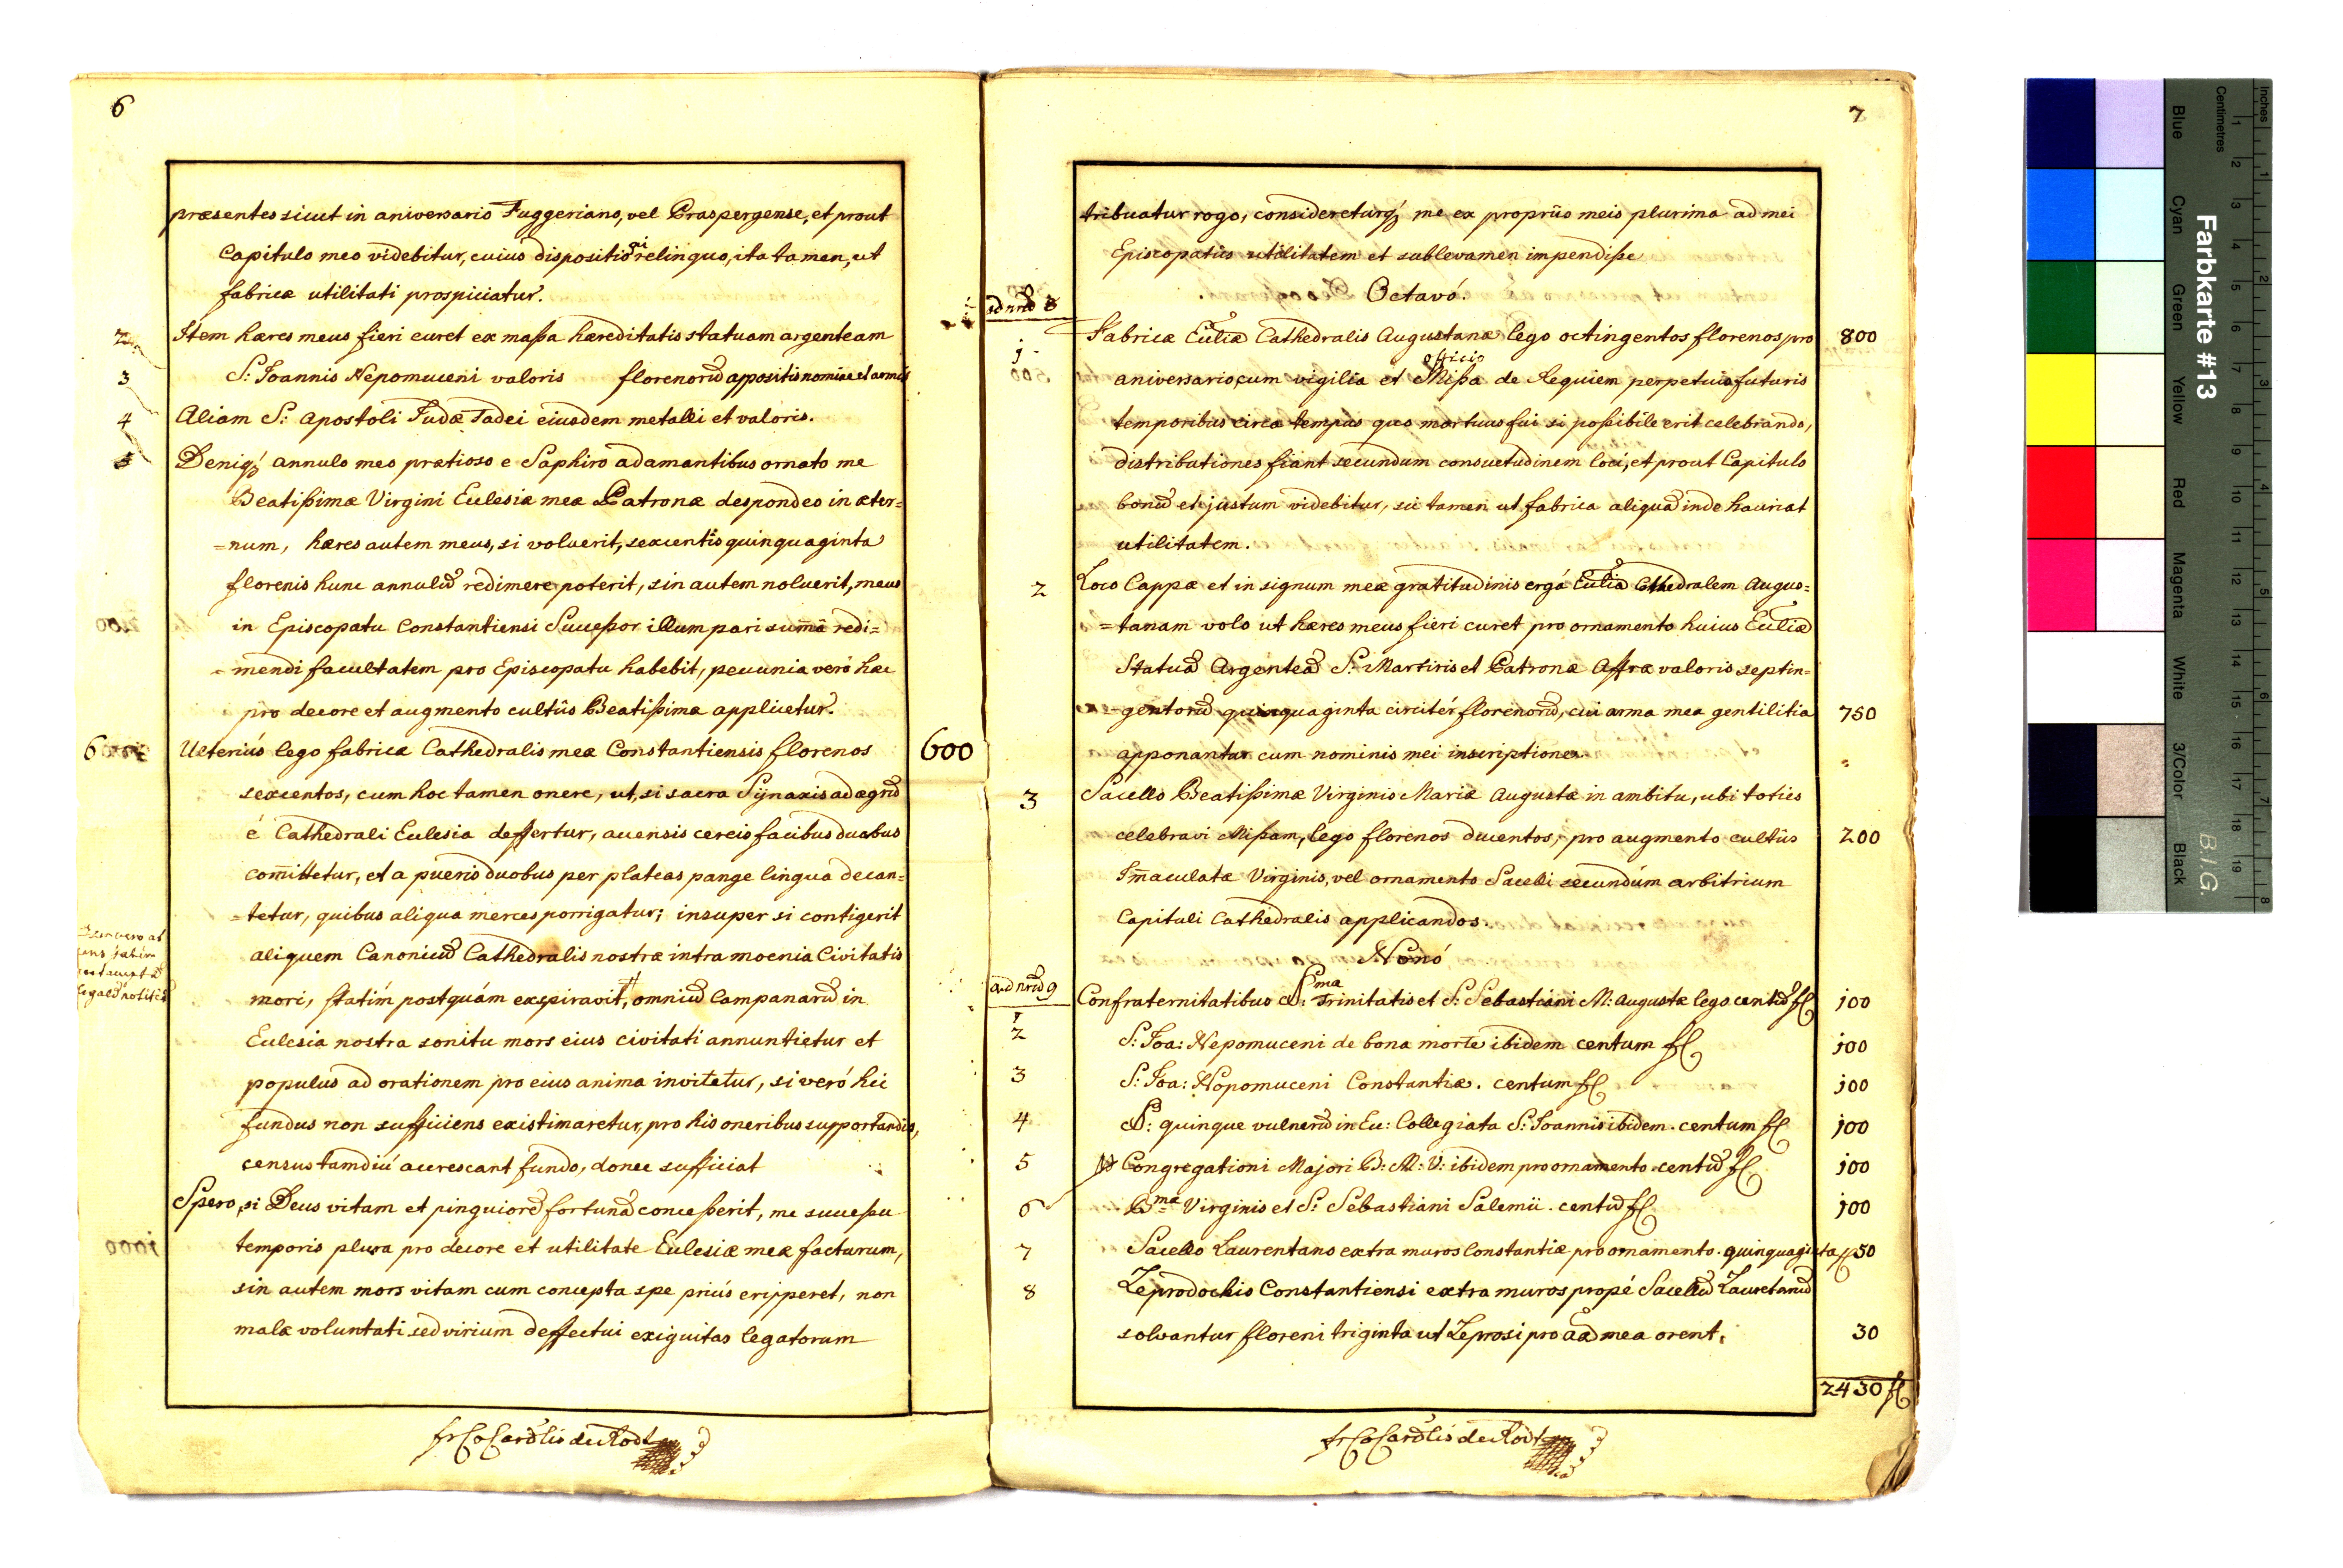 6
præsentes sicut in aniversario Fuggeriano, vel Praspergense, et prout
Capitulo meo videbitur, cuius dispositioni relinquo, ita tamen, ut
fabricæ utilitati prospiciatur.
2 Item hæres meus fieri curet ex massa hæreditatis statuam argenteam
3 S: Joannis Nepomuceni valoris florenorum appositis nomine et armis
4 Aliam S: Apostoli Judæ Tadei eiusdem metalli et valoris.
5 Deniq annulo meo prætioso e Saphiro adamantibus ornato me
Beatissimæ Virgini Eclesiæ meæ Patronæ despondeo in æter=
=num, hæres autem meus, si voluerit, sexcentis quinquaginta
florenis hunc annulum redimere poterit, sin autem noluerit, meus
in Episcopatu Constantiensi Sucessor illum pari summa redi=
=mendi facultatem pro Episcopatu habebit, pecunia veró hæc
pro decore et augmento cultûs Beatissimæ applicetur.
6 Ulterius lego fabricæ Cathedralis meæ Constantiensis florenos 600
sexcentos, cum hoc tamen onere, ut, si sacra Sÿnaxis ad ægrum
é Cathedrali Eclesia deffertur, accensis cereis facibus duabus
comittetur, et a pueris duobus per plateas pange lingua decan=
=tetur, quibus aliqua merces porrigatur; insuper si contigerit
aliquem Canonicum Cathedralis nostræ intra moenia Civitatis
mori, statim postquám expiravit, omnium Campanarum in
Eclesia nostra sonitu mors eius civitati annuntietur et
populus ad orationem pro eius anima invitetur, si veró hic
fundus non sufficiens existimaretur, pro his oneribus supportandis,
census tamdiú acrescant fundo, donec sufficiat
Spero, si Deus vitam et pinguiorem fortunam concesserit, me sucessu
temporis plura pro decore et utilitate Eclesiæ meæ facturum,
sin autem mors vitam cum concepta spe priús eripperet, non
malæ voluntati sed virium deffectui exiguitas legatorum
fr C Cardlis de Rodt
7
tribuatur rogo, considereturq me ex propriis meis plurima ad mei
Episcopatûs utilitatem et sublevamen impendisse
Octavó.
ad nrum 8
1 Fabricæ Ecliæ Cathedralis Augustanæ lego octingentos florenos pro 800
officio
aniversario cum vigilia et Missa de Requiem perpetuis futuris
temporibus circa tempus quo mortuus fui si possibile erit celebrando,
distributiones fiant secundum consuetudinem loci, et prout Capitulo
bonum et justum videbitur, sic tamen ut fabrica aliquam inde hauriat
utilitatem.
2 Loco Cappæ et in signum meæ gratitudinis ergá Ecliam Cathedralem Augus=
=tanam volo ut hæres meus fieri curet pro ornamento huius Ecliæ
Statuam Argenteam S: Martiris et Patronæ Affræ valoris septin=
=gentorum quinquaginta circitér florenorum, cui arma mea gentilitia 750
apponantur cum nominis mei inscriptione.
3 Sacello Beatissimæ Virginis Mariæ Augustæ in ambitu, ubi toties
celebravi Missam, lego florenos ducentos, pro augmento cultûs 200
Imaculatæ Virginis, vel ornamento Sacelli secundúm arbitrium
Capituli Cathedralis applicandos.
Nonó
ad nrum 9
1 Confraternitatibus SSma Trinitatis et S: Sebastiani M: Augustæ lego centum fl 100
2 S: Joa: Nepomuceni de bona morte ibidem centum fl 100
3 S: Joa: Nepomuceni Constantiæ. centum fl 100
4 SS: quinque vulnerum in Ec: Collegiata S: Joannis ibidem. centum fl 100
5 Congregationi Majori B: M: V: ibidem pro ornamento centum fl 100
6 Bmæ Virginis et S: Sebastiani Salemii. centum fl 100
7 Sacello Laurentano extra muros Constantiæ pro ornamento. quinquaginta fl 50
8 Leprodochio Constantiensi extra muros propé Sacellum Lauretanum
solvantur floreni triginta ut Leprosi pro aa mea orent. 30
2430 fl
fr C Cardlis de Rodt
Farbkarte #13
B.I.G.
Inches
Centimetres
Blue Cyan Green Yellow Red Magenta White 3/Color Black
1 2 3 4 5 6 7 8 9 10 11 12 13 14 15 16 17 18 19
1 2 3 4 5 6 7 8